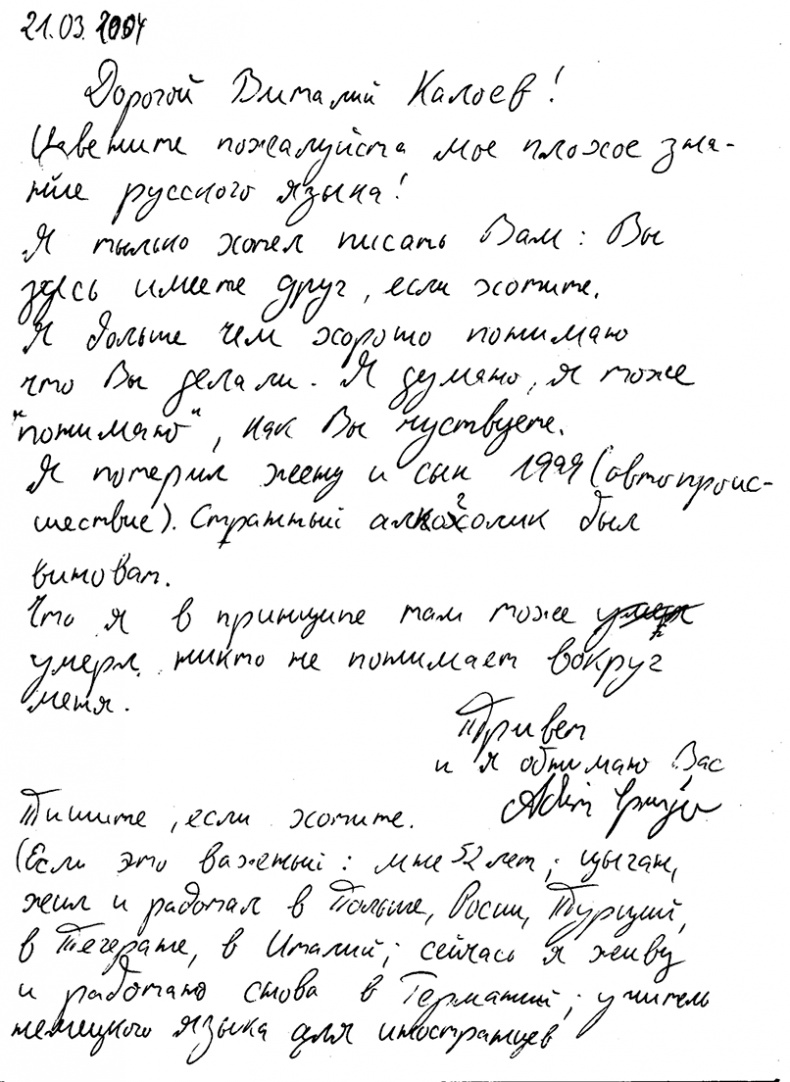 21.03.2004
Дорогой Виталий Калоев!
Извените пожалуйста мое плохое зна-
ние русского языка!
Я тылько хотел писать Вам: Вы
здесь имеете друг, если хотите.
Я больше чем хорошо понимаю
что Вы делали. Я думаю, я тоже
"понимаю", как Вы чуствуете.
Я потерил жену и сын 1999 (автопроис-
шествие). Странный алкоголик был
виноват.
Что я в принципе там тоже
умерл, никто не понимает вокруг
меня.
Привет
и я обнимаю Вас
Пишите, если хотите.
(Если это важеный: мне 52 лет; цыган,
жил и работал в Польше, Росии, Турций,
в Тегеране, в Италий; сейчась я живу
и работаю снова в Германий; учитель
немецкого языка для иностранцев